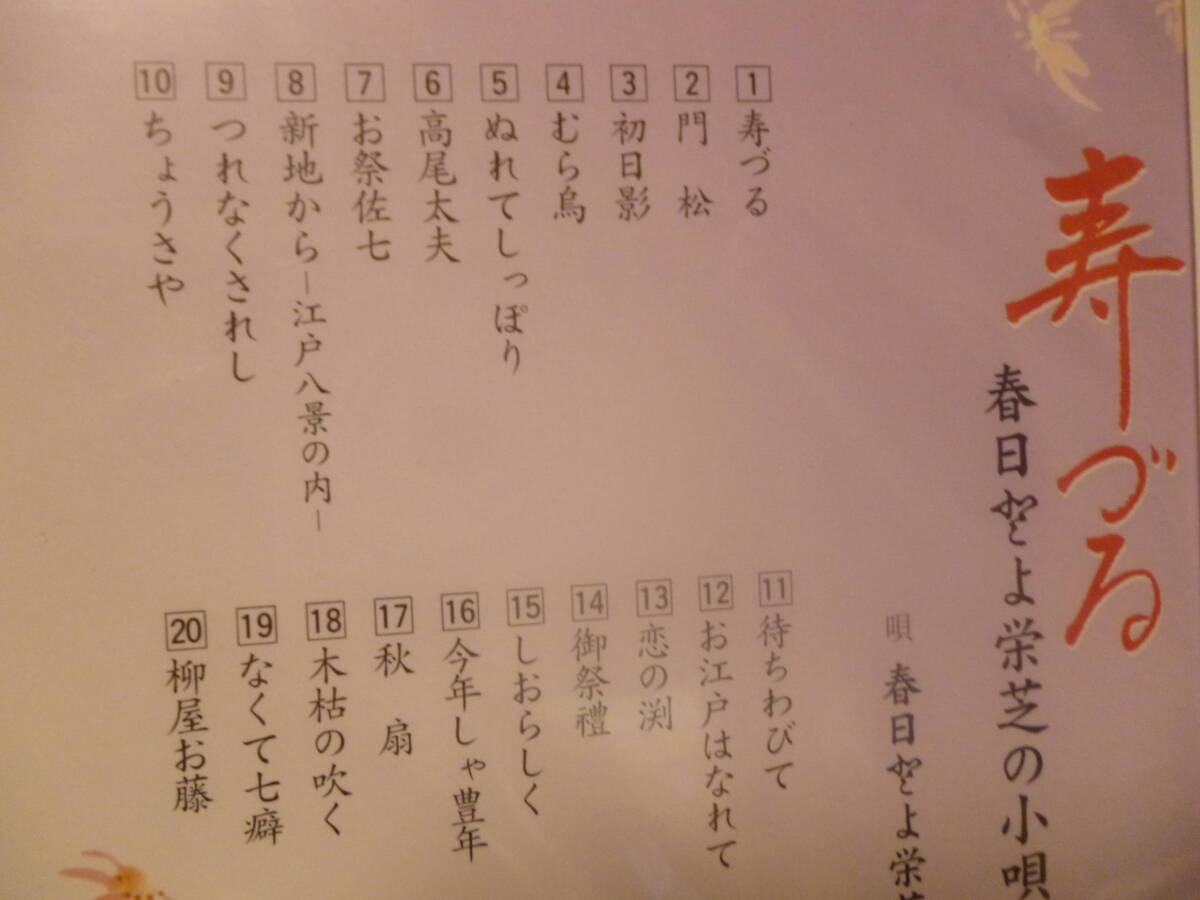 寿づる
春日とよ栄芝の小唄
唄 春日とよ栄芝
1 寿づる
2 門 松
3 初日影
4 むら烏
5 ぬれてしっぽり
6 高尾太夫
7 お祭佐七
8 新地から—江戸八景の内—
9 つれなくされし
10 ちょうさや
11 待ちわびて
12 お江戸はなれて
13 恋の渕
14 御祭禮
15 しおらしく
16 今年しゃ豊年
17 秋 扇
18 木枯の吹く
19 なくて七癖
20 柳屋お藤